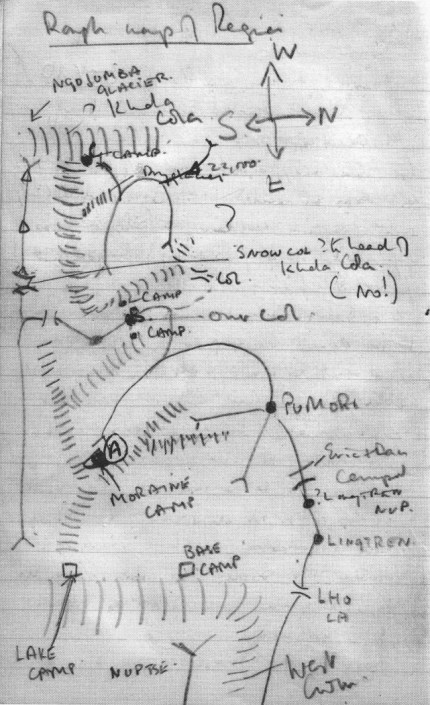 Rough map of Region
W
S
N
E
NGOJUMBA
GLACIER.
? Khola
Cola
CAMP.
22,000.
?
SNOW COL ? to head of
Khola Cola.
(No!)
COL
CAMP
CAMP.
our Col.
PUMORI.
A
MORAINE
CAMP
Eric + Dan
Camped
? LINGTREN
NUP.
LINGTREN.
BASE
CAMP
LHO
LA
LAKE
CAMP
NUPTSE.
West
Cwm.